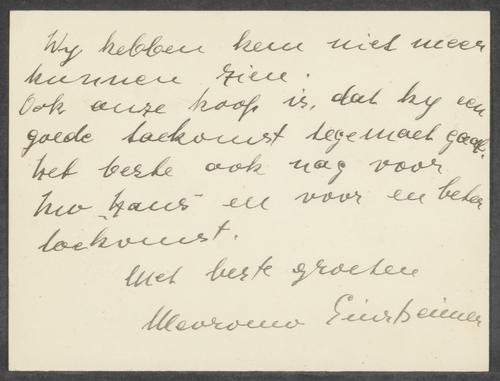 Wy hebben hem niet meer
kunnen zien.
Ook onze hoop is, dat hy een
goede toekomst tegemoet gaat.
het beste ook nog voor
Uw "hans" en voor en beter
toekomst.
Met beste groeten
Mevrouw